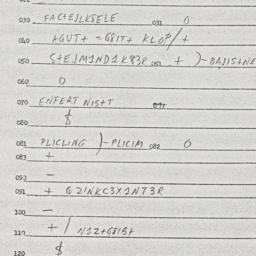 030 FACTEJLKSELE 031 0
040 AGUT+ -GBIT+ KLOP/+
050 S+EJMIND1K83R 052 + )-BAJIS+NE
060 0
070 ENFERT NIS++ 071
080 $
081 PLICLING )-PLICIM 082 0
083 +
090 -
091 + G2INKC3X1NT3R
100 -
110 + / N1Z+G8IB+
120 $